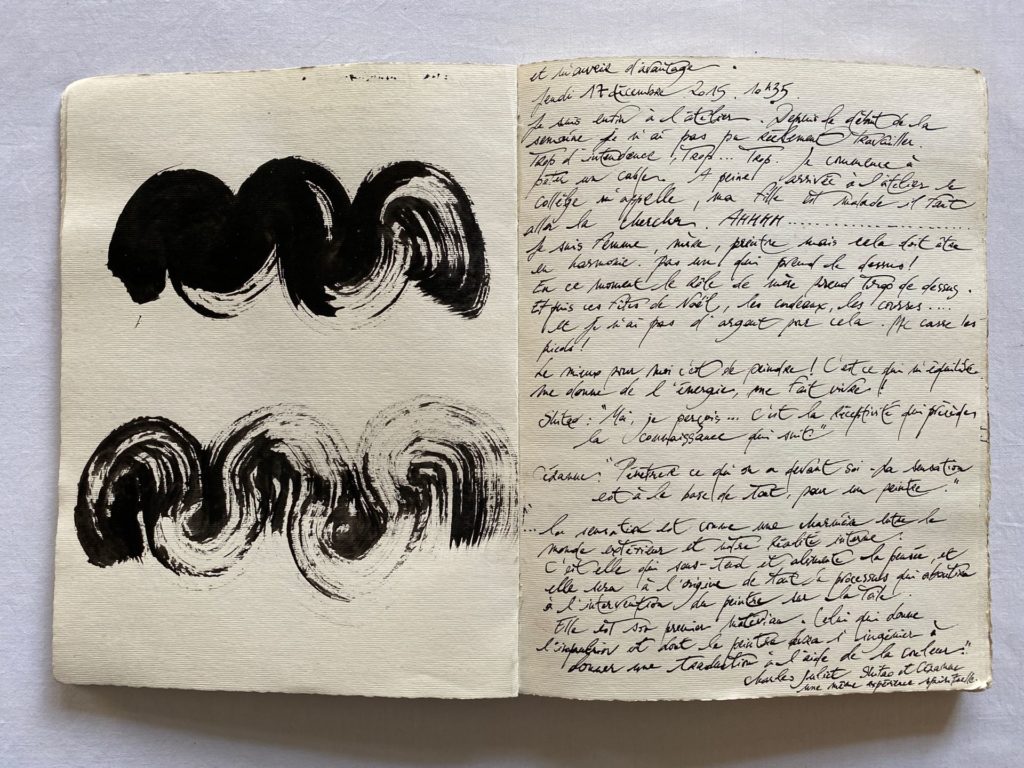 et m'ouvrir d'avantage.
Jeudi 17 décembre 2015. 10h35
Je suis enfin à l'atelier. Depuis le début de la
semaine je n'ai pas pu réellement travailler.
Trop d'intendance! Trop... Trop. Je commence à
péter un cable. A peine arrivée à l'atelier le
collège m'appelle, ma fille est malade il faut
aller la chercher. AHHHH..............
Je suis femme, mère, peintre mais cela doit être
en harmonie. Pas un qui prend le dessus!
En ce moment le rôle de mère prend trop de dessus.
Et puis ces fêtes de Noël, les cadeaux, les courses....
et je n'ai pas d'argent pour cela. Me casse les
pieds!
Le mieux pour moi c'est de peindre! C'est ce qui m'équilibre
me donne de l'énergie, me fait vivre!
Shitao: "Moi, je perçois... C'est la réceptivité qui précède
la connaissance qui suit"
Cézanne: "Pénétrer ce qu'on a devant soi. La sensation
est à la base de tout, pour un peintre."
"... La sensation est comme une charnière entre le
monde extérieur et notre réalité interne.
C'est elle qui sous-tend et alimente la pensée, et
elle sera à l'origine de tout le processus qui aboutira
à l'intervention du peintre sur la toile.
Elle est son premier matériau. Celui qui donne
l'impulsion et dont le peintre aura à s'ingénier à
donner une traduction à l'aide de la couleur."
Charles Juliet Shitao et Cézanne
une même expérience spirituelle.